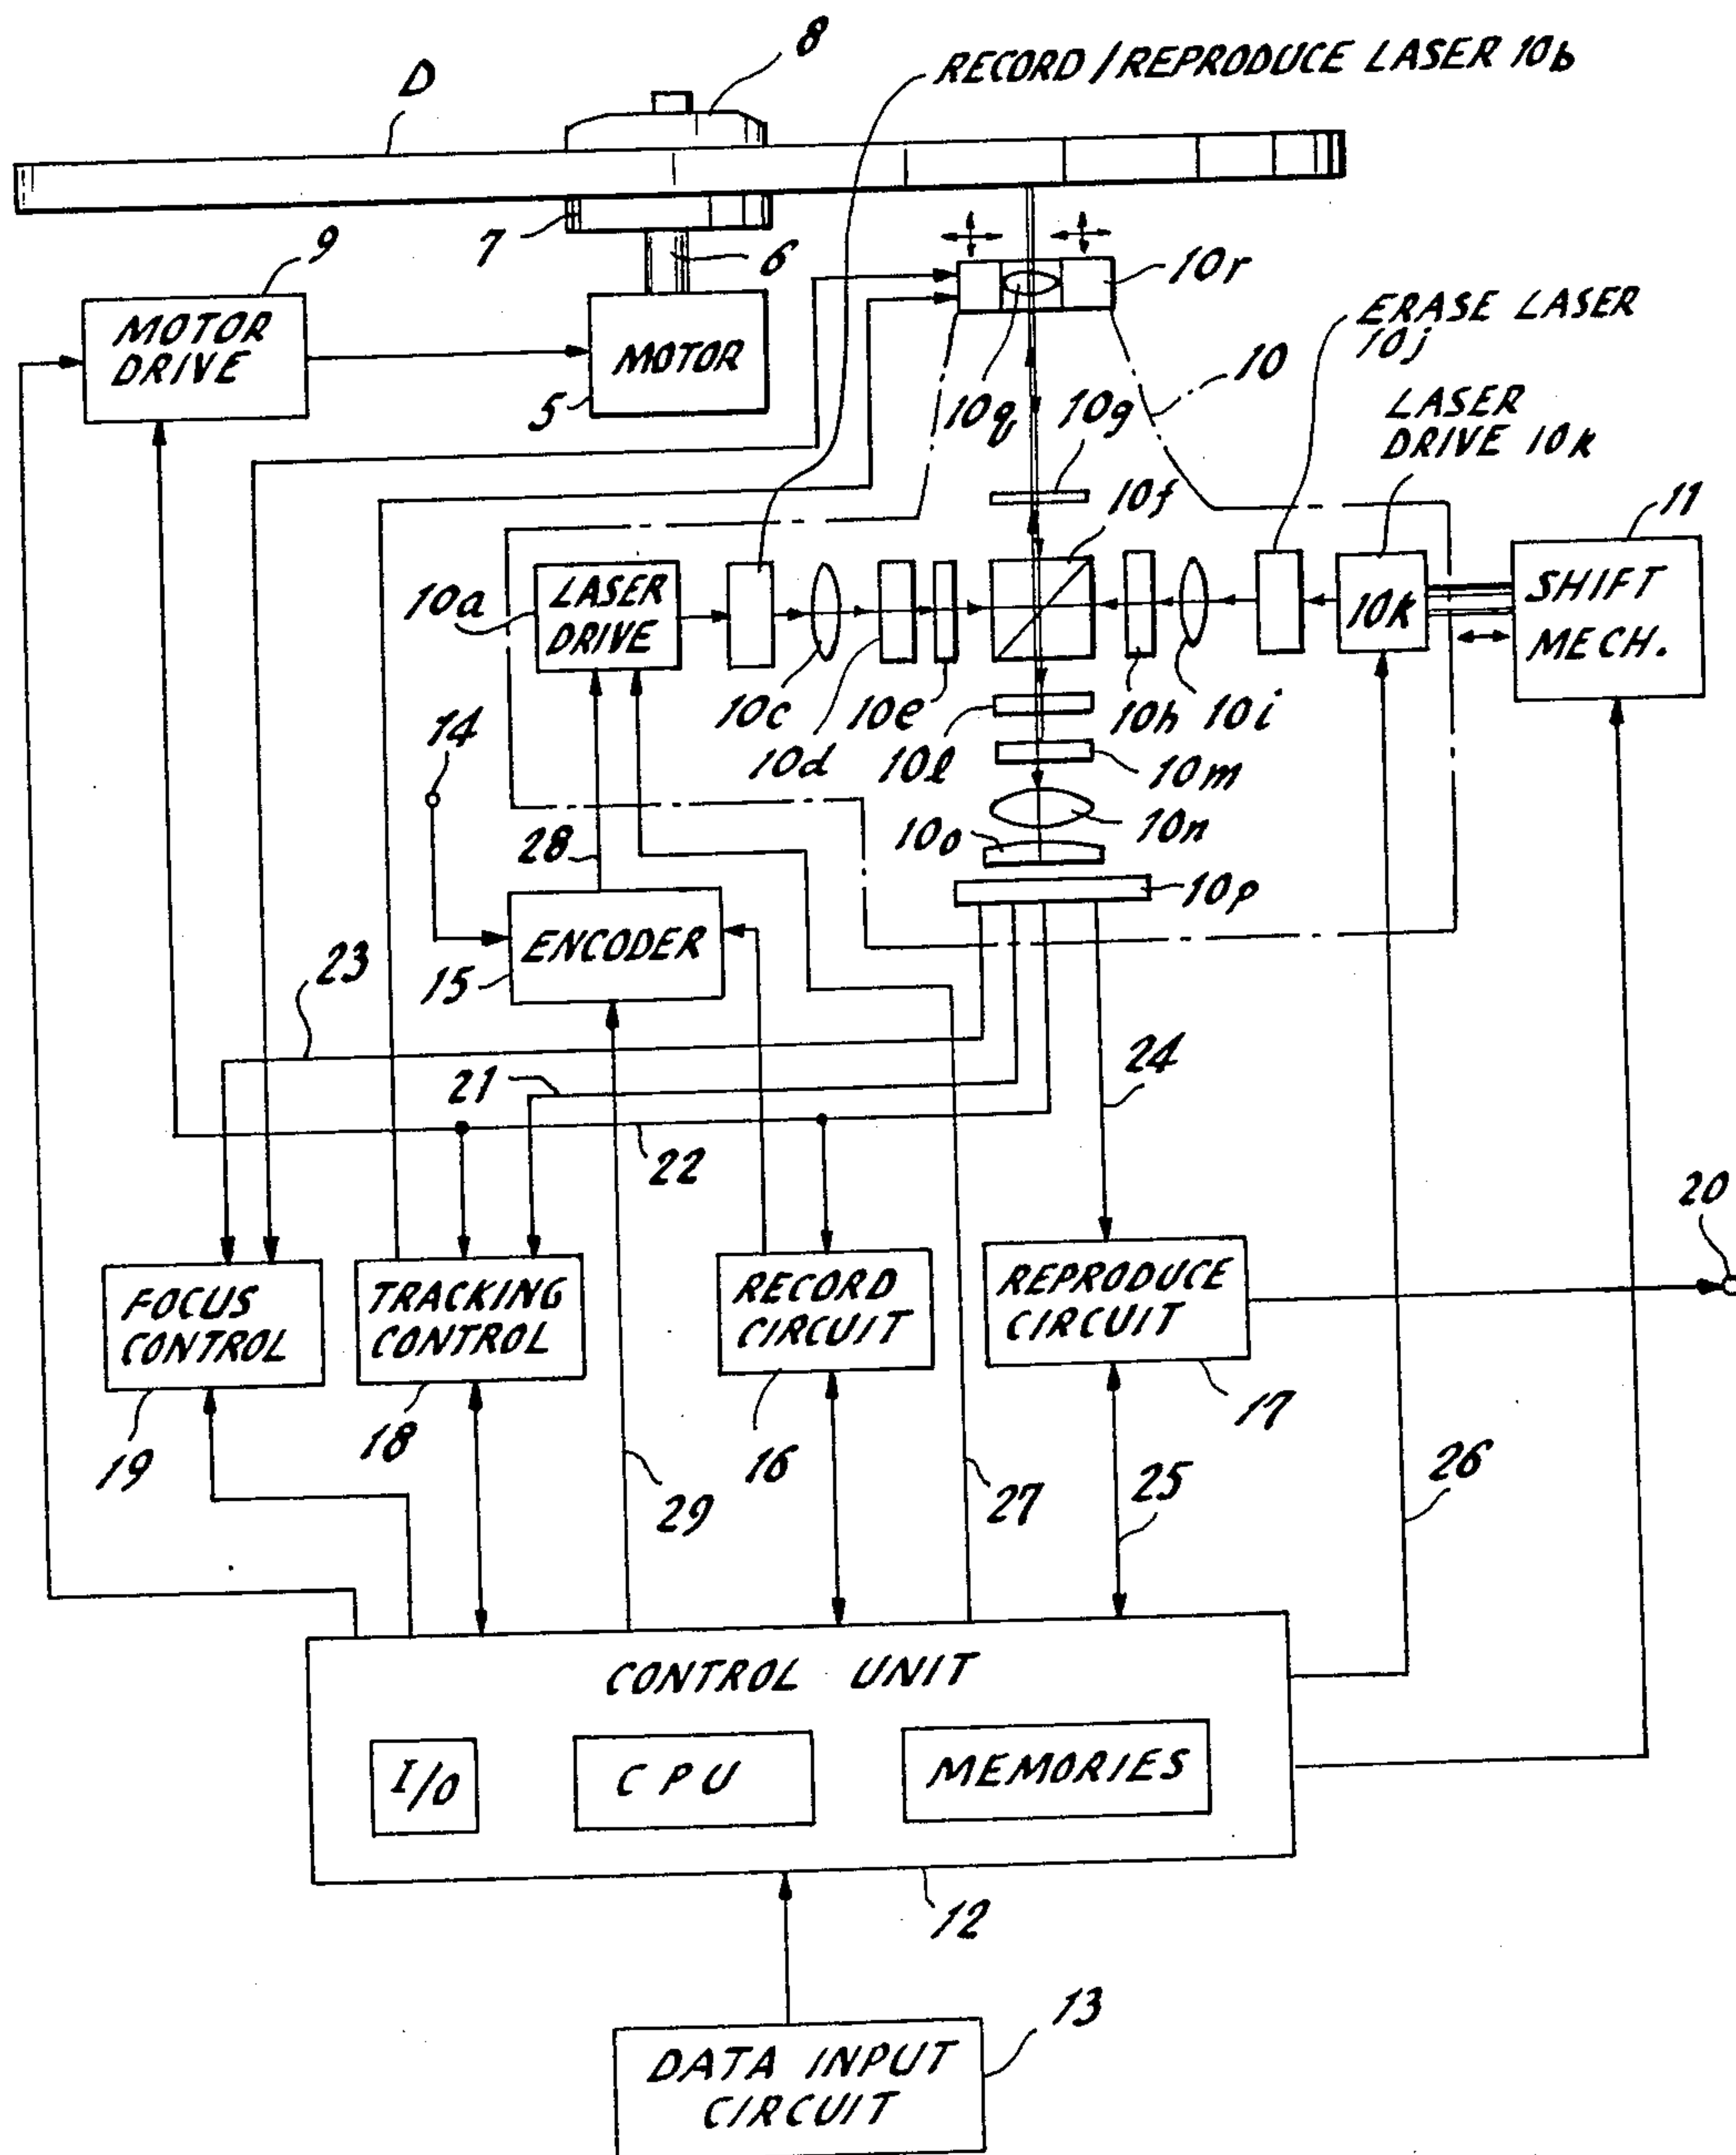 8
RECORD/REPRODUCE LASER 10b
D
9
7
6
10r
MOTOR
DRIVE
MOTOR
5
ERASE LASER
10j
10
10q
10g
LASER
DRIVE 10k
10f
11
10a
LASER
DRIVE
10K
SHIFT
MECH.
10c
10d
10e
10l
10h
10i
10m
14
10n
10o
28
10p
ENCODER
15
23
21
24
22
20
FOCUS
CONTROL
TRACKING
CONTROL
RECORD
CIRCUIT
REPRODUCE
CIRCUIT
19
18
16
17
29
27
25
26
CONTROL UNIT
I/O
CPU
MEMORIES
12
13
DATA INPUT
CIRCUIT